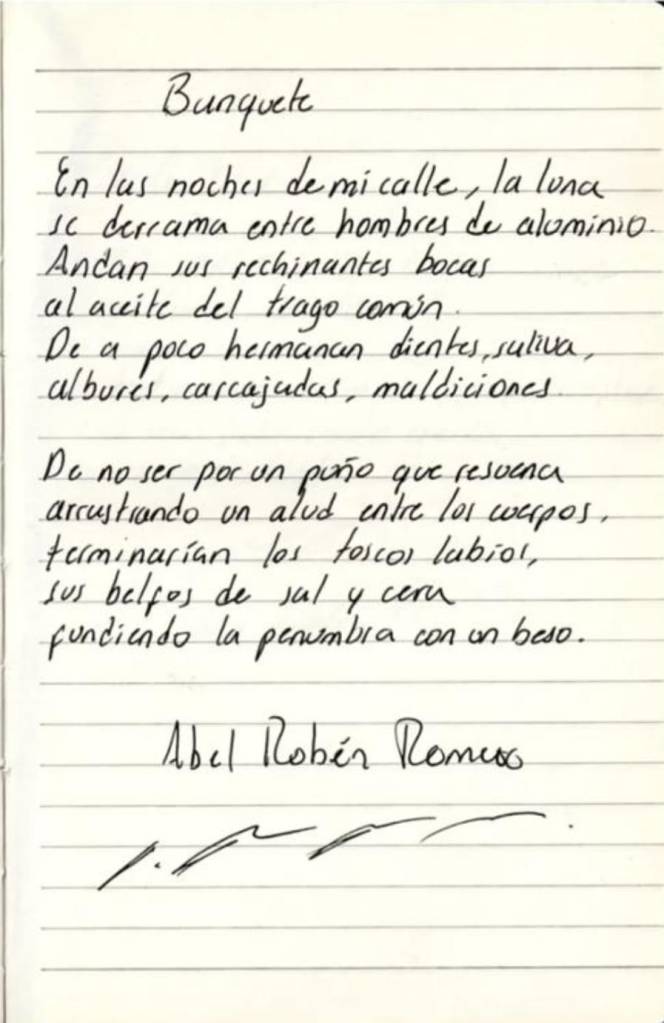 Banquete
En las noches de mi calle, la luna
se derrama entre hombres de aluminio.
Andan sus rechinantes bocas
al aceite del trago común.
De a poco hermanan dientes, saliva,
albures, carcajadas, maldiciones.
De no ser por un puño que resuena
arrastrando un alud entre los cuerpos,
terminarían los toscos labios,
sus belfos de sal y cera
fundiendo la penumbra con un beso.
Abel Rubén Romero